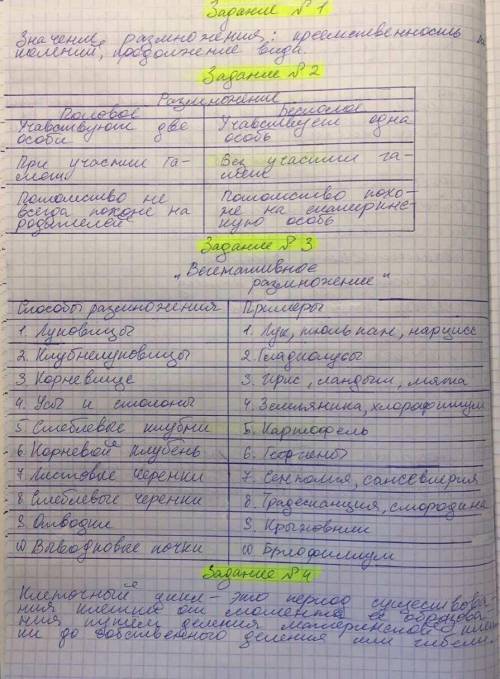 Задание №1
Значение размножения: преемственность
поколений, продолжение вида.
Задание №2
Размножение
Половое Бесполое
Учавствуют две особи Учавствует одна особь
При участии гамет Без участия гамет
Потомство не всегда похоже на родителей Потомство похоже на материнскую особь
Задание №3
"Вегетативное
размножение"
Способы размножения Примеры
1. Луковицы 1. Лук, тюльпан, нарцисс
2. Клубнелуковицы 2. Гладиолусы
3. Корневище 3. Ирис, ландыш, мята
4. Усы и столоны 4. Земляника, хлорофитум
5. Стеблевые клубни 5. Картофель
6. Корневой клубень 6. Георгины
7. Листовые черенки 7. Сенполия, сансевиерия
8. Стеблевые черенки 8. Традесканция, смородина
9. Отводки 9. Крыжовник
10 Выводковые почки 10 Бриофиллум
Задание №4
Клеточный цикл - это период существова-
ния клетки от момента её образова-
ния путём деления материнской клет-
ки до собственного деления или гибели